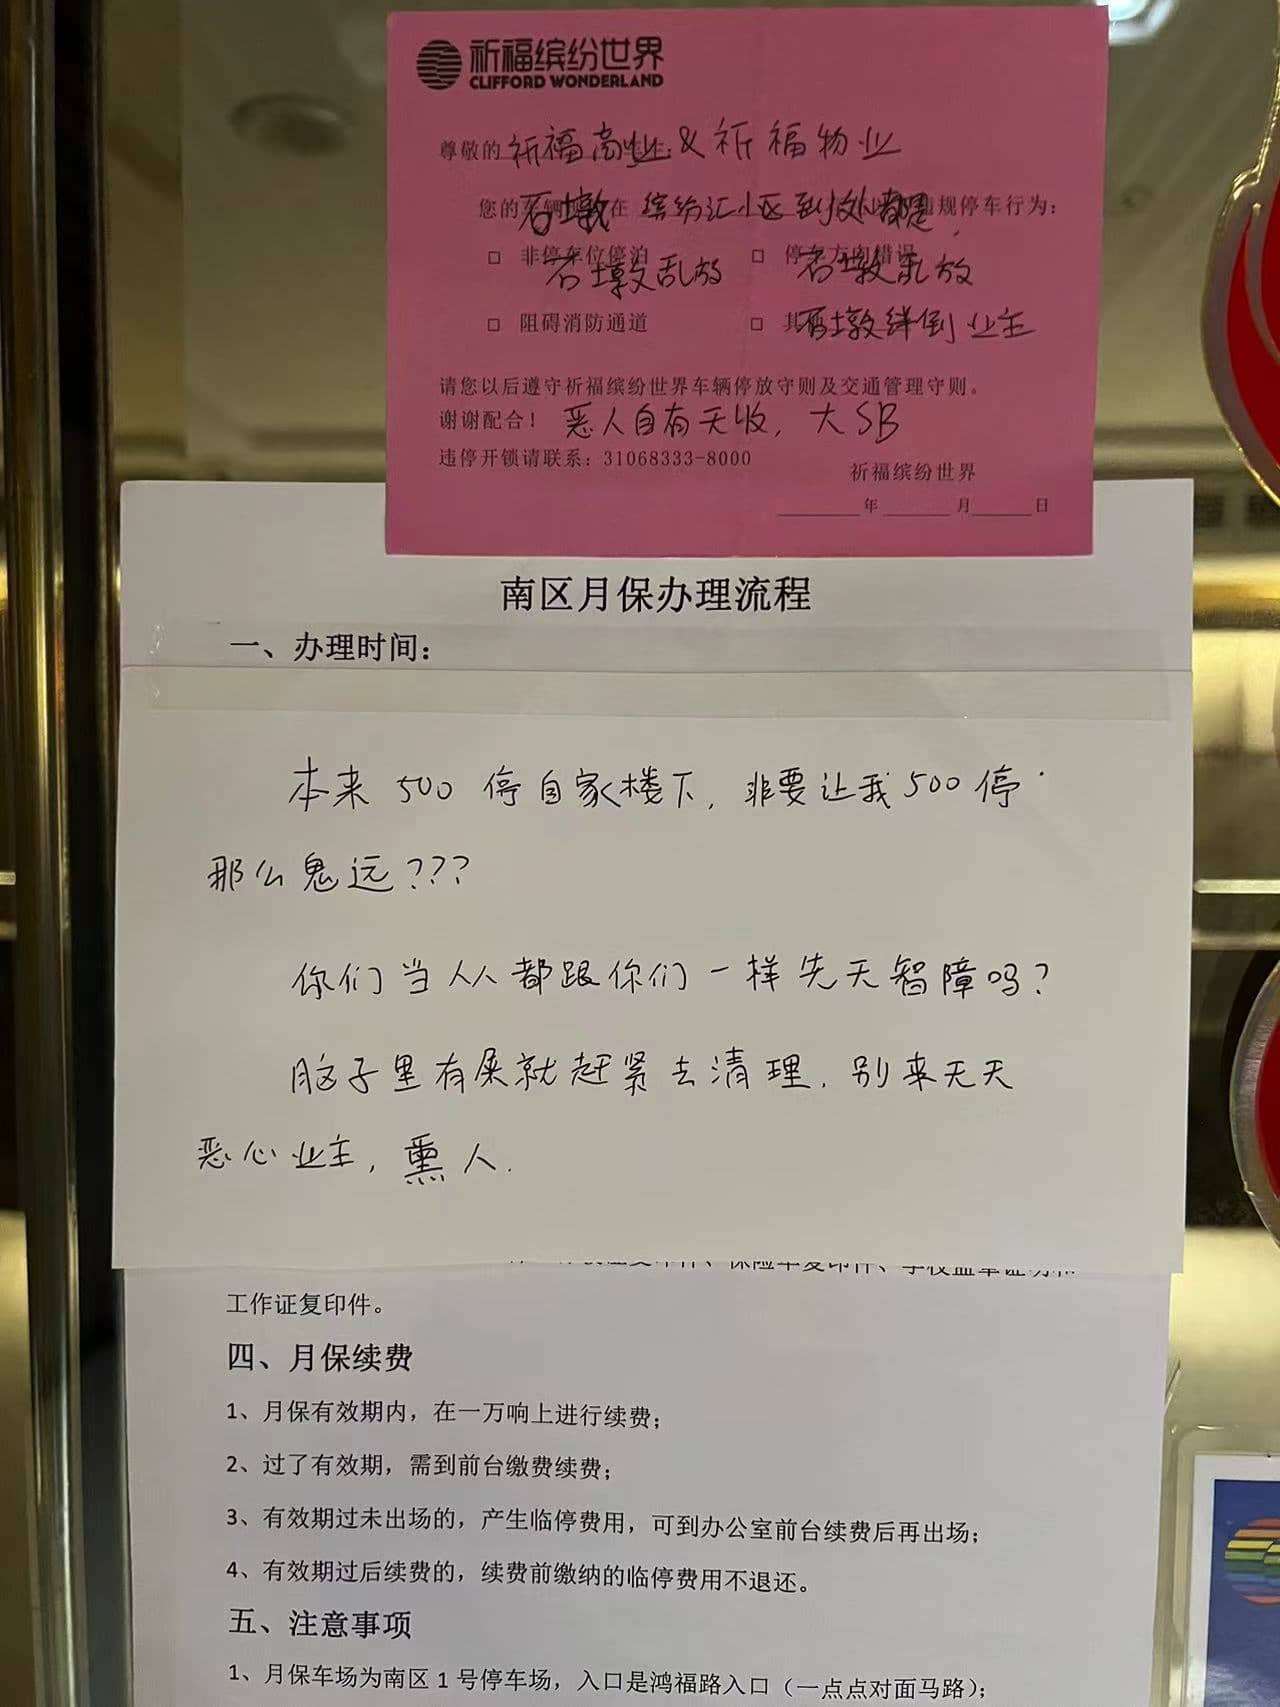 祈福缤纷世界
CLIFFORD WONDERLAND
尊敬的 祈福商业 & 祈福物业
您的 石墩 在 缤纷汇小区到处都是, 违规停车行为：
□ 非停车位停泊 □ 停车方向错误
石墩乱放 石墩乱放
□ 阻碍消防通道 □ 其 石墩绊倒业主
请您以后遵守祈福缤纷世界车辆停放守则及交通管理守则。
谢谢配合！ 恶人自有天收, 大SB
违停开锁请联系：31068333-8000
祈福缤纷世界
年 月 日
南区月保办理流程
一、办理时间：
本来500停自家楼下, 非要让我500停
那么鬼远???
你们当人人都跟你们一样先天智障吗?
脑子里有屎就赶紧去清理, 别来天天
恶心业主, 熏人.
工作证复印件。
四、月保续费
1、月保有效期内，在一万响上进行续费；
2、过了有效期，需到前台缴费续费；
3、有效期过未出场的，产生临停费用，可到办公室前台续费后再出场；
4、有效期过后续费的，续费前缴纳的临停费用不退还。
五、注意事项
1、月保车场为南区1号停车场，入口是鸿福路入口（一点点对面马路）；